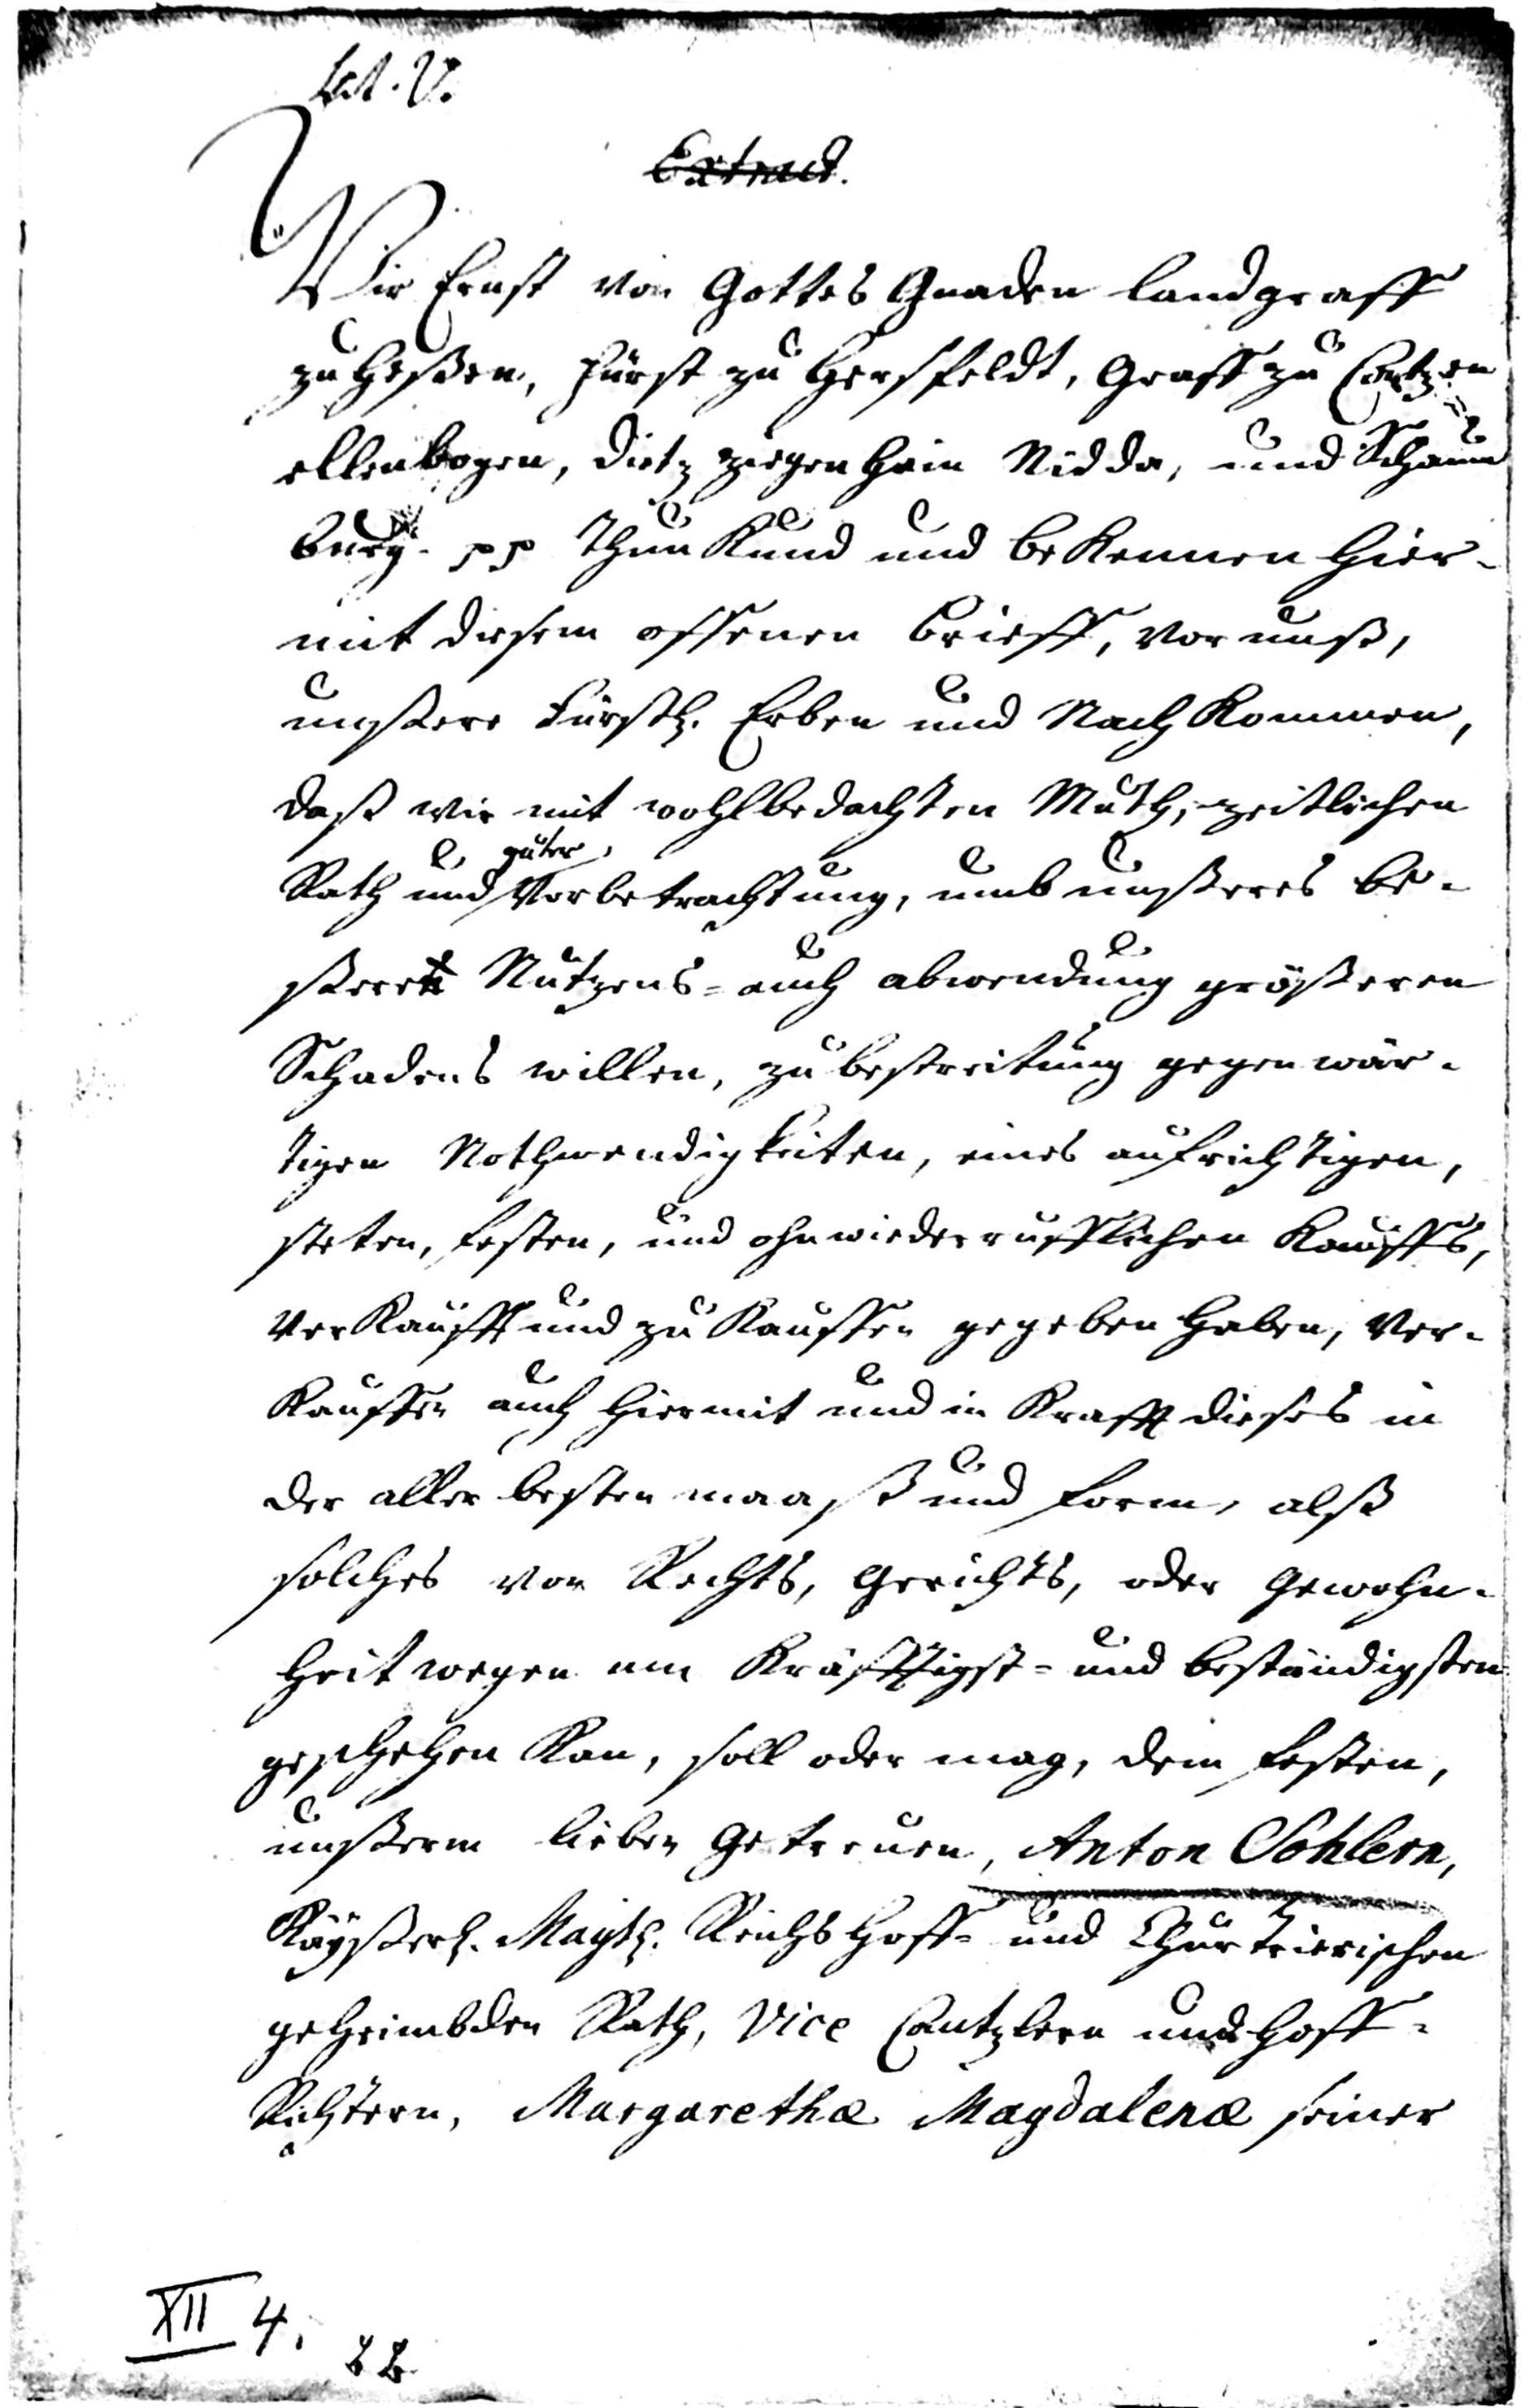 Lit. V.
Extract.
Wir Ernst von Gottes Gnaden Landgraff
zu Heßen, Fürst zu Hersfeldt, Graff zu Catzen
ellenbogen, Dietz Ziegenhain Nidda, und Schaum
burg. pp Thun Kund und beKennen hier-
mit diesem offenen Brieff, vor unß,
unßere Fürstl. Erben und NachKommen,
daß wir mit wohlbedachten Muth, zeitlichen
Rath und guter Vorbetrachtung, umb unßeres be-
ßeren Nutzens- auch abwendung größeren
Schadens willen, zu bestreitung gegenwär-
tigen Nothwendigkeiten, eines aufrichtigen,
steten, festen, und ohnwiederrufflichen Kauffs,
verKaufft und zu Kauffen gegeben haben, ver-
Kauffen auch hiermit und in Krafft dieses in
der aller besten maaß und form, alß
solches von Rechts, Gerichts, oder Gewohn-
heit wegen am Kräfftigst- und beständigsten
geschehen Kan, soll oder mag, dem festen,
unßerm lieben Getreuen, Anton Sohlern,
Käyßerl. Maytt. Reichs Hoff- und ChurTrierischen
geheimbden Rath, Vice Cantzlern und Hoff-
Richtern, Margarethæ Magdalenæ seiner
XII 4.